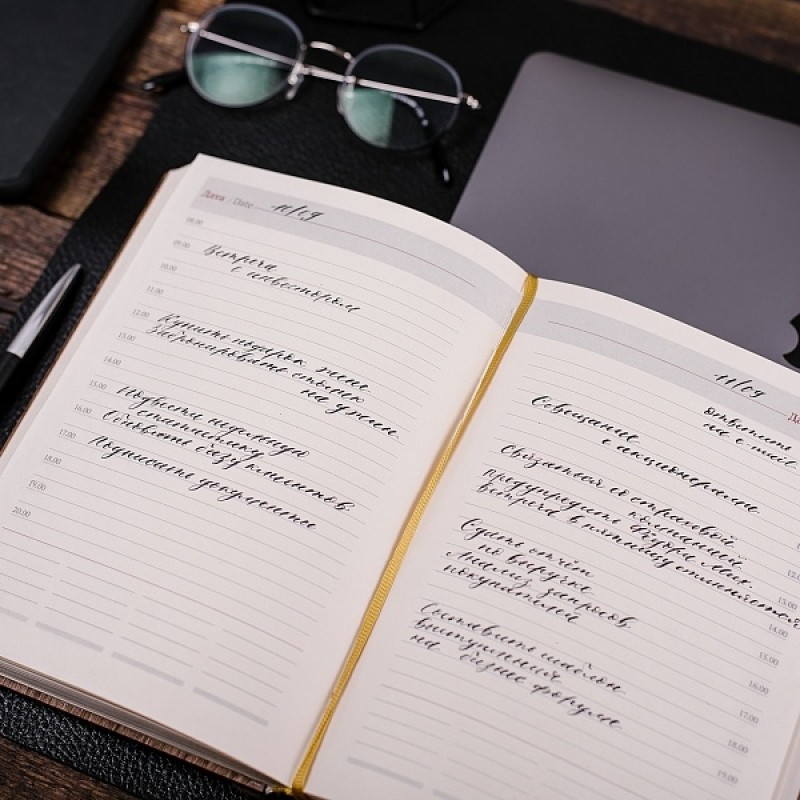 Дата / Date 10/09
08.00
09.00
Встреча
10.00
с инвестором
11.00
12.00
Купить подарок жене
13.00
Забронировать столик
на ужин
14.00
15.00
Подвести недельную
статистику
16.00
Обновить базу клиентов
17.00
Подписать документы
18.00
19.00
20.00
11/09
ответить
на e-mail
Совещание
с акционерами
Связаться со страховой
компанией
предупредить Фёдора Мих.
встреча в пятницу отменяется
Сдать отчёт
по выручке
Анализ запросов
покупателей
Составить шаблон
выступления
на бизнес форуме
14.00
15.00
16.00
17.00
18.00
19.00